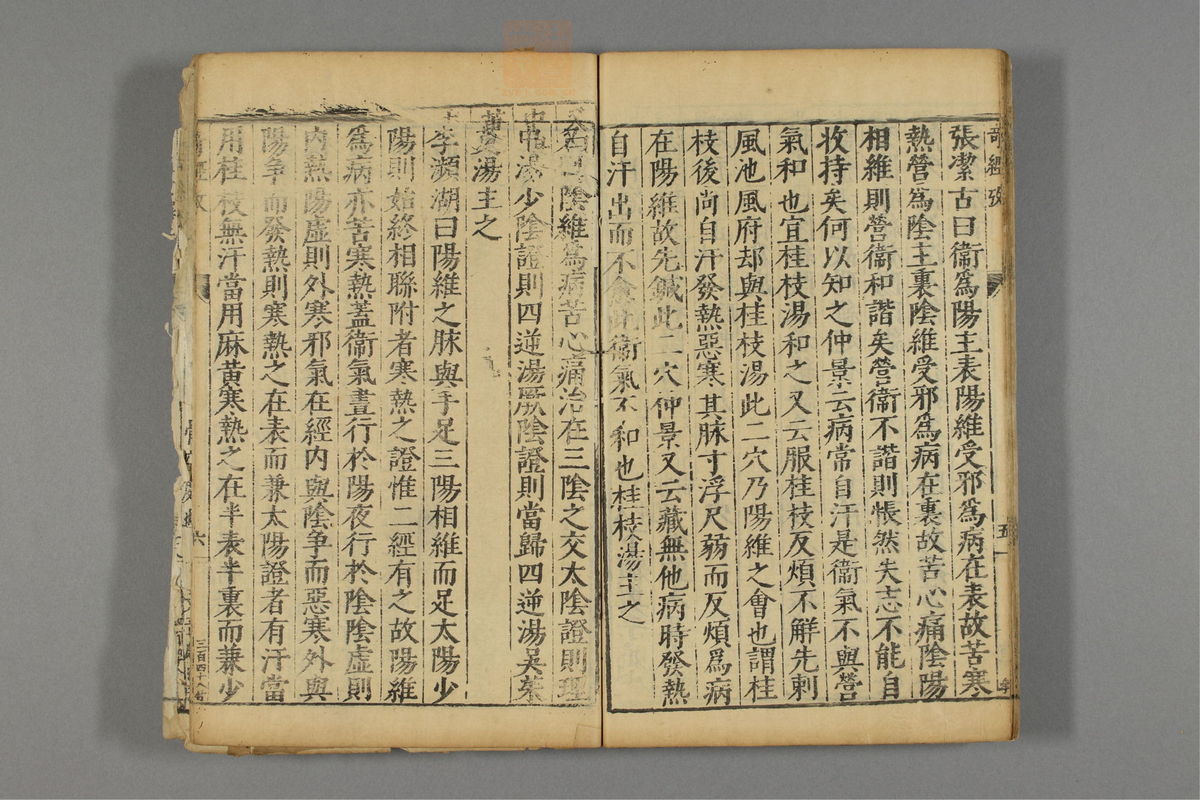 奇經攷
五
張潔古曰衞爲陽主表陽維受邪爲病在表故苦寒
熱營爲陰主裏陰維受邪爲病在裏故苦心痛陰陽
相維則營衞和諧矣營衞不諧則悵然失志不能自
收持矣何以知之仲景云病常自汗是衞氣不與營
氣和也宜桂枝湯和之又云服桂枝反煩不解先刺
風池風府却與桂枝湯此二穴乃陽維之會也謂桂
枝後尚自汗發熱惡寒其脉寸浮尺弱而反煩爲病
在陽維故先鍼此二穴仲景又云藏無他病時發熱
自汗出而不愈此衞氣不和也桂枝湯主之
陰維爲病苦心痛治在三陰之交太陰證則理
中湯少陰證則四逆湯厥陰證則當歸四逆湯吳茱
萸湯主之
李瀕湖曰陽維之脉與手足三陽相維而足太陽少
陽則始終相聯附者寒熱之證惟二經有之故陽維
爲病亦苦寒熱蓋衞氣晝行於陽夜行於陰陰虛則
內熱陽虛則外寒邪氣在經內與陰爭而惡寒外與
陽爭而發熱則寒熱之在表而兼太陽證者有汗當
用桂枝無汗當用麻黃寒熱之在半表半裏而兼少
六